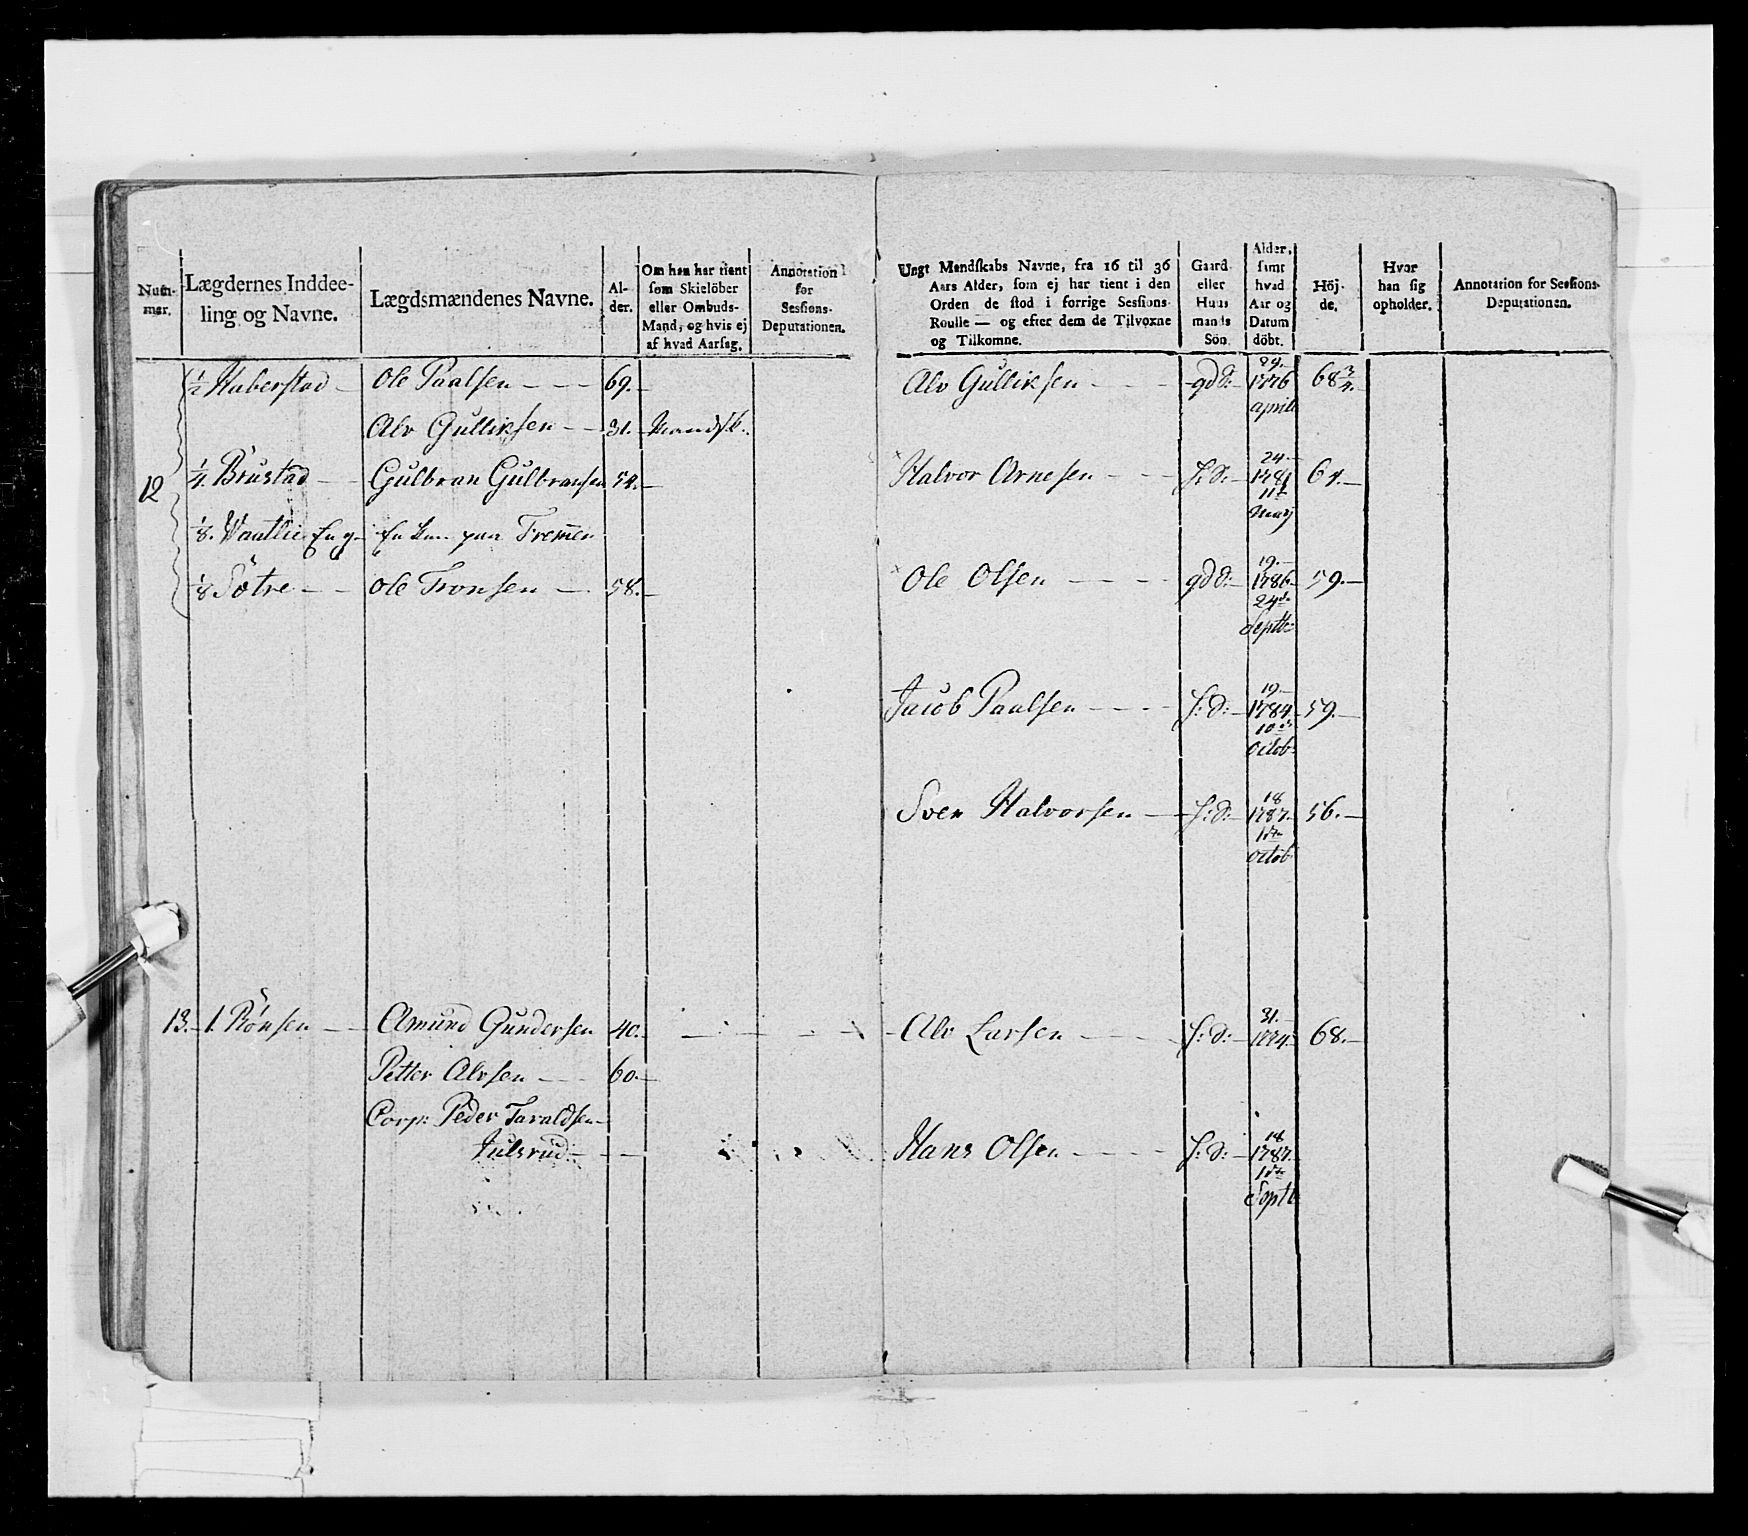 Num-
mer.
Lægdernes Inddee-
ling og Navne.
Lægdsmændenes Navne.
Al-
der.
Om han har tient
som Skielöber
eller Ombuds-
Mand, og hvis ej
af hvad Aarsag.
Annotation
for
Sessions-
Deputationen.
12
1/2 Haberstad — Ole Paalsen — — — 69. —
Alv Gulliksen — — 31. —
1/4. Brustad — — Gulbran Gulbransen 54. —
1/8. Eng — paa Tremen
1/8 Sötre — — Ole Tronsen — 58. —
13. — 1. Rönsen — — Amund Gundersen 40. —
Petter Alvsen — — 60. —
Corp: Peder Taraldsen —
Julsrud — — —
Ungt Mandskabs Navne, fra 16 til 36
Aars Alder, som ej har tient i den
Orden de stod i forrige Sessions-
Roulle — og efter dem de Tilvoxne
og Tilkomne.
Gaard
eller
Huus
mands
Sön.
Alder,
samt
hvad
Aar og
Datum
döbt.
Höj-
de.
Hvor
han sig
opholder.
Annotation for Sessions-
Deputationen.
29.
Alv Gulliksen — — — gdd: — 1776 68 3/4. —
april
24. —
Halvor Arnesen — — — f: d: — 1781 64. —
11te
May
19. —
Ole Olsen — — — gdd: — 1786 — 59. —
24de
Septb:
19 —
Jacob Paalsen — — — f: d: — 1784 — 59. —
10de
Octob:
18
Sven Halvorsen — f: d: — 1787. — 56. —
1ste
Octob:
31. —
Alv Larsen — — — f: d: — 1774. — 68. —
18
Hans Olsen — — — f: d: — 1787. —
1ste
Septb